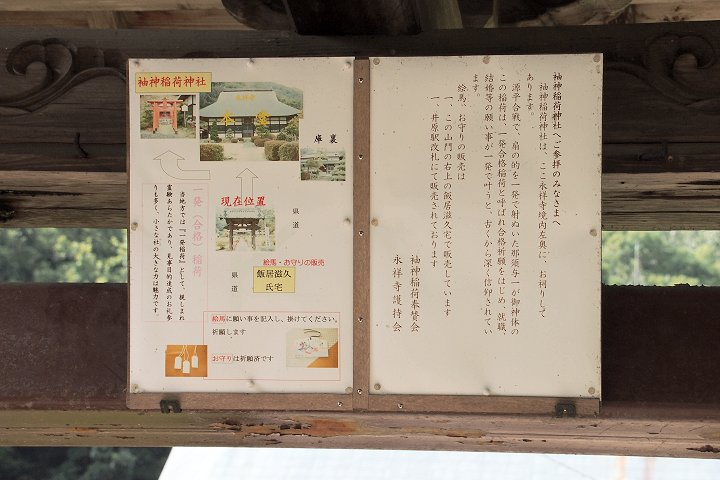 袖神稲荷神社へご参拝のみなさまへ
袖神稲荷神社は、ここ永祥寺境内左奥に、お祠りして
あります。
源平合戦で、扇の的を一発で射ぬいた那須与一が御神体の
この稲荷は、一発合格稲荷と呼ばれ合格祈願をはじめ、就職、
結婚等の願い事が一発で叶うと、古くから深く信仰されてい
ます。
絵馬、お守りの販売は
一、この山門の右上の飯居滋久宅で販売しています
一、井原駅改札にて販売されております
袖神稲荷奉賛会
永祥寺護持会
袖神稲荷神社
本堂
庫裏
現在位置
県道
一発(合格)稲荷
当地方では『一発稲荷』として、親しまれ
霊験あらたかであり、見事目的達成のお礼参
りも多く、小さな社の大きな力は魅力です。
絵馬・お守りの販売
県道
飯居滋久
氏宅
絵馬に願い事を記入し、掛けてください。
祈願します
お守りは祈願済です